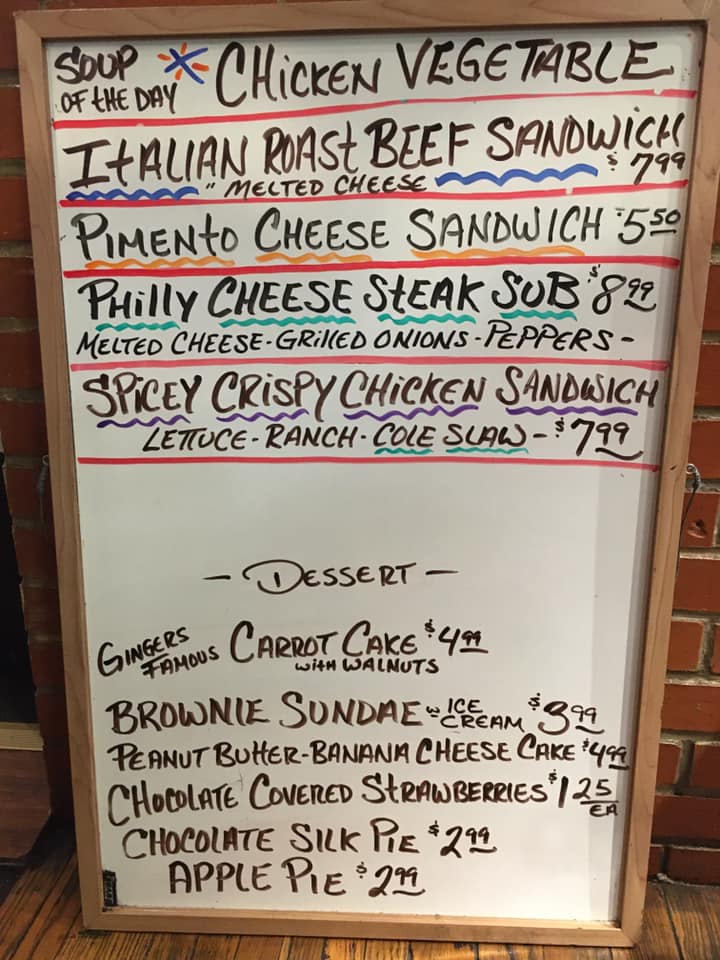 SOUP OF THE DAY * CHICKEN VEGETABLE
ITALIAN ROAST BEEF SANDWICH
" MELTED CHEESE $7.99
PIMENTO CHEESE SANDWICH $5.50
PHILLY CHEESE STEAK SUB $8.99
MELTED CHEESE-GRILLED ONIONS-PEPPERS-
SPICEY CRISPY CHICKEN SANDWICH
LETTUCE-RANCH-COLE SLAW-$7.99
- DESSERT -
GINGERS FAMOUS CARROT CAKE $4.99
WITH WALNUTS
BROWNIE SUNDAE W ICE CREAM $3.99
PEANUT BUTTER-BANANA CHEESE CAKE $4.99
CHOCOLATE COVERED STRAWBERRIES $1.25 EA
CHOCOLATE SILK PIE $2.99
APPLE PIE $2.99